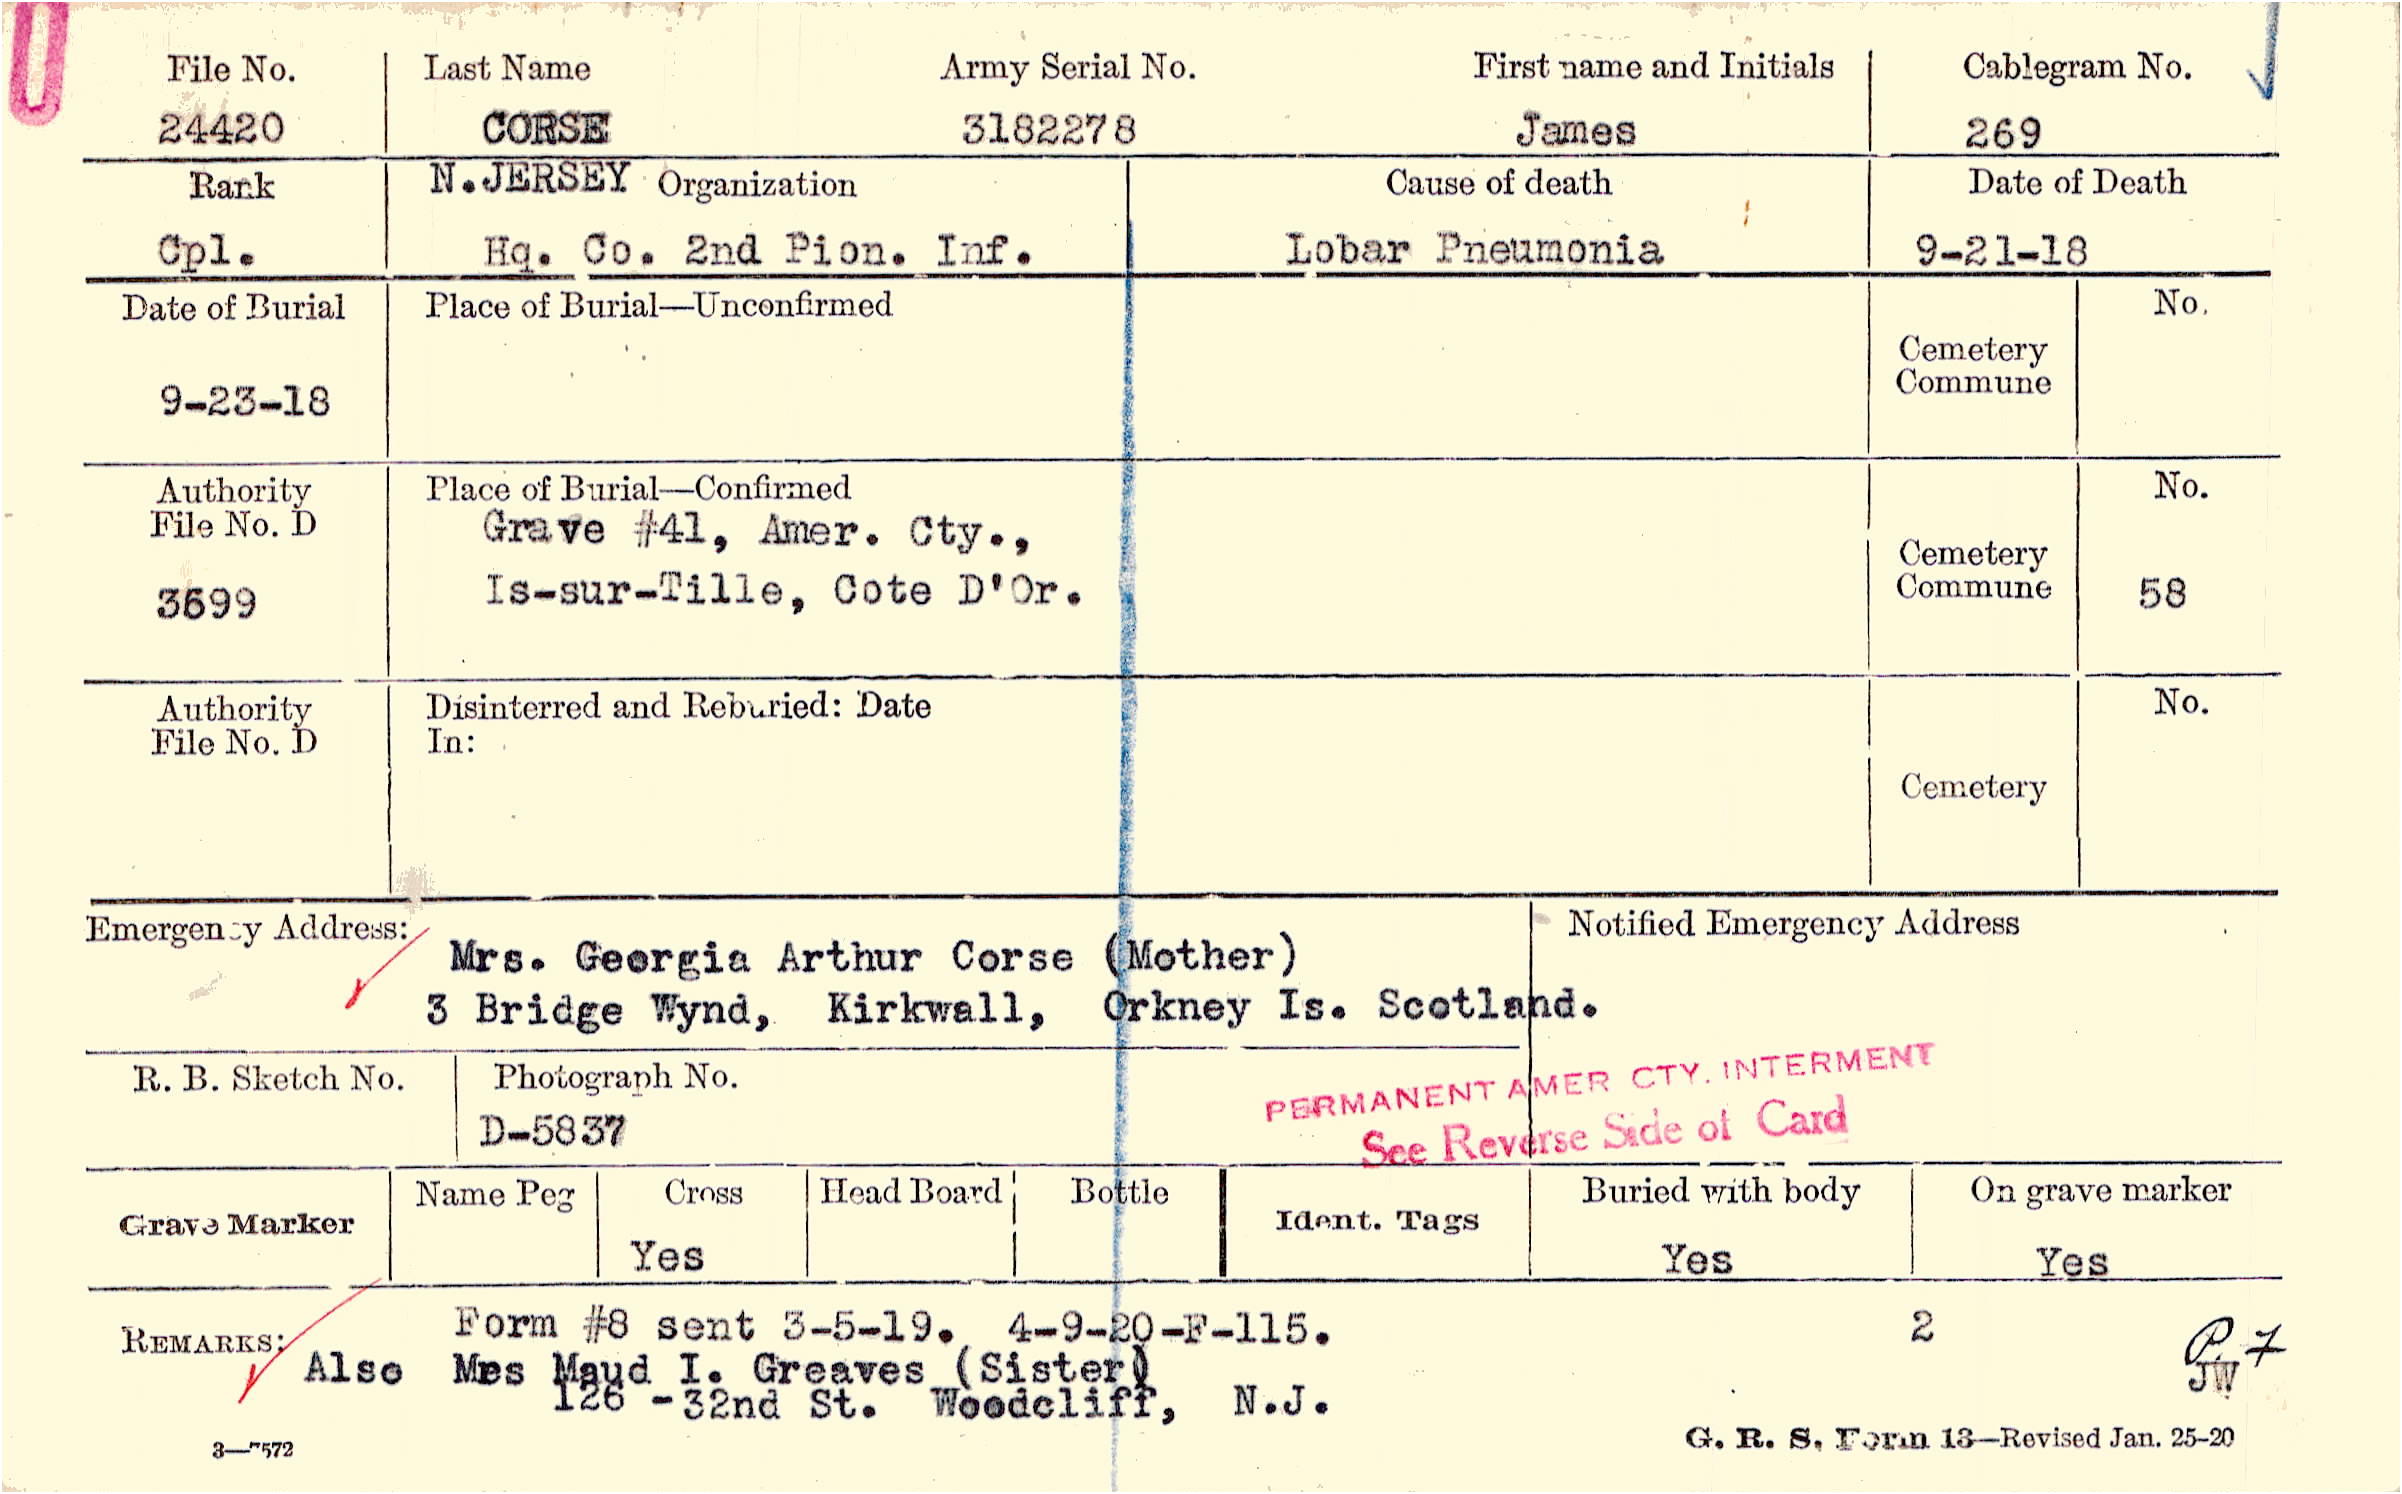 File No. Last Name Army Serial No. First name and Initials Cablegram No.
24420 CORSE 3182278 James 269
Rank N.JERSEY Organization Cause of death Date of Death
Cpl. Hq. Co. 2nd Pion. Inf. Lobar Pneumonia 9-21-18
Date of Burial Place of Burial—Unconfirmed No.
Cemetery
Commune
9-23-18
Authority Place of Burial—Confirmed No.
File No. D Grave #41, Amer. Cty.,
Cemetery
3699 Is-sur-Tille, Cote D'Or. Commune 58
Authority Disinterred and Reburied: Date No.
File No. D In:
Cemetery
Emergency Address: Notified Emergency Address
Mrs. Georgia Arthur Corse (Mother)
3 Bridge Wynd, Kirkwall, Orkney Is. Scotland.
R. B. Sketch No. Photograph No.
D-5837
PERMANENT AMER CTY. INTERMENT
See Reverse Side of Card
Grave Marker Name Peg Cross Head Board Bottle Ident. Tags Buried with body On grave marker
Yes Yes Yes
REMARKS: Form #8 sent 3-5-19. 4-9-20-F-115. 2
P. 7
Also Mrs Maud I. Greaves (Sister) JW
126 -32nd St. Woodcliff, N.J.
3—7572 G. R. S. Form 13—Revised Jan. 25-20